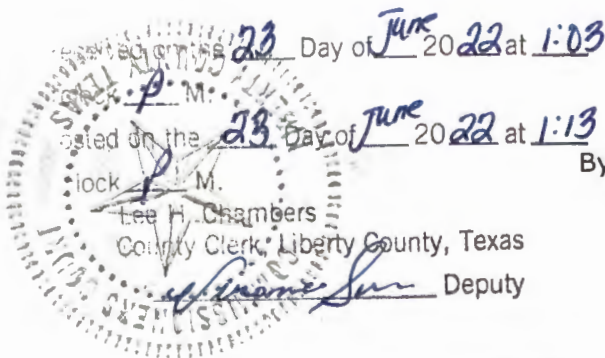 on the 23 Day of June 2022 at 1:03
P M.
on the 23 Day of June 2022 at 1:13
By
lock P M.
Lee H. Chambers
County Clerk, Liberty County, Texas
Deputy